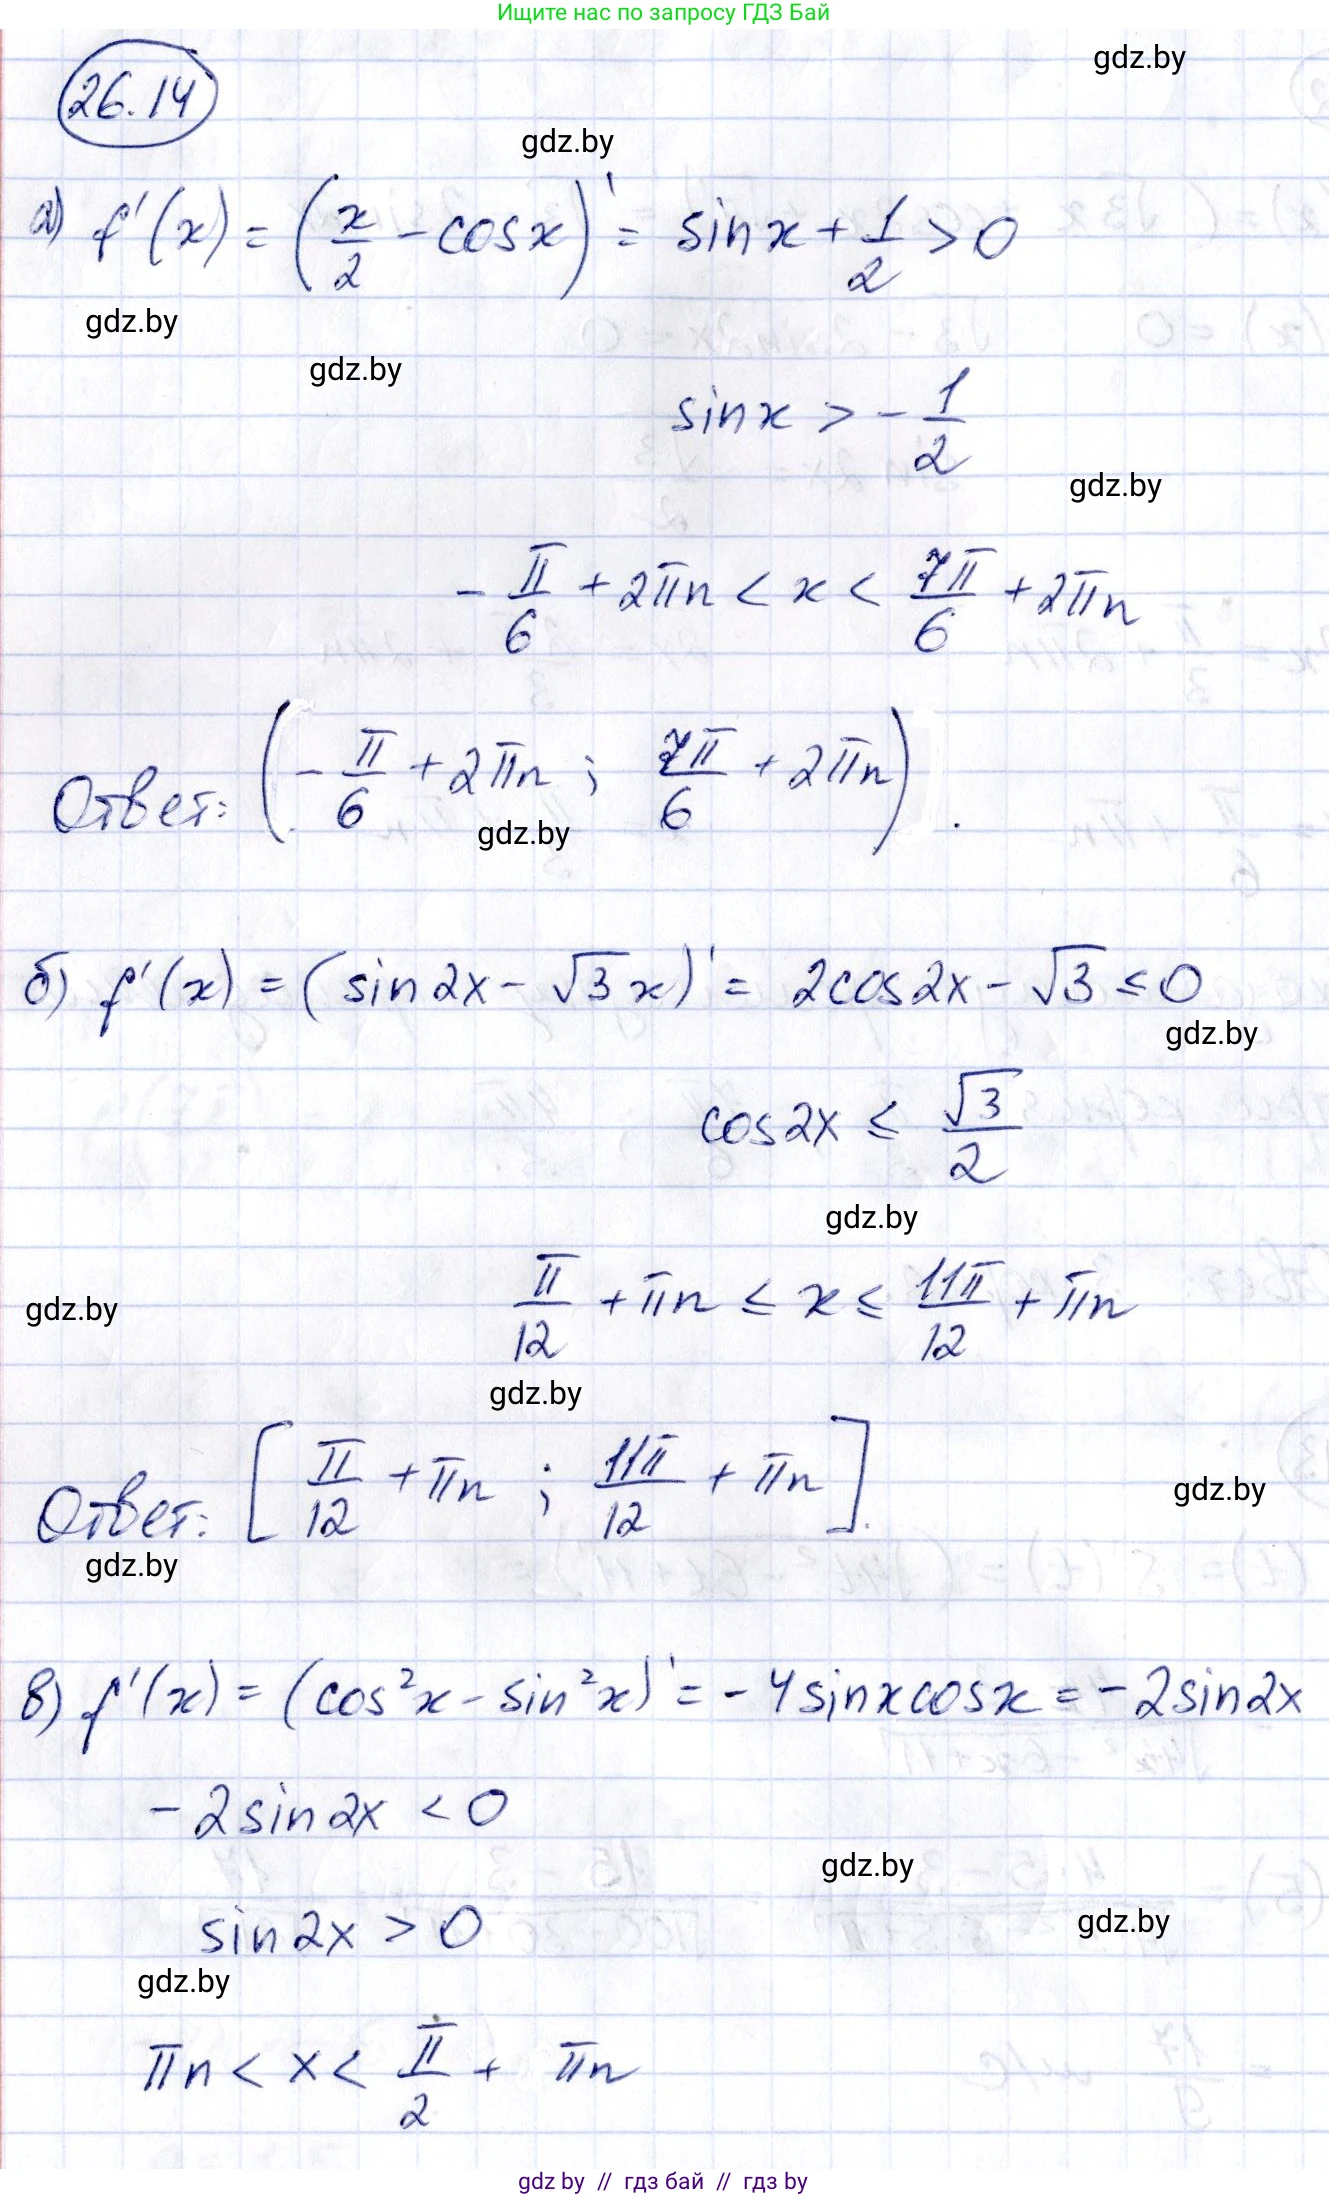 Ищите нас по запросу ГДЗ Бай
gdz.by
26.14
gdz.by
а) f'(x) = (x/2 - cosx)' = sinx + 1/2 > 0
gdz.by
gdz.by
sinx > - 1/2
gdz.by
- π/6 + 2πn < x < 7π/6 + 2πn
Ответ: (- π/6 + 2πn ; 7π/6 + 2πn).
gdz.by
б) f'(x) = (sin2x - √3x)' = 2cos2x - √3 ≤ 0
gdz.by
cos2x ≤ √3/2
gdz.by
π/12 + πn ≤ x ≤ 11π/12 + πn
gdz.by
gdz.by
Ответ: [π/12 + πn ; 11π/12 + πn].
gdz.by
gdz.by
в) f'(x) = (cos²x - sin²x)' = - 4sinxcosx = - 2sin2x
- 2sin2x < 0
gdz.by
sin2x > 0
gdz.by
gdz.by
πn < x < π/2 + πn
gdz by // гдз бай // гдз by